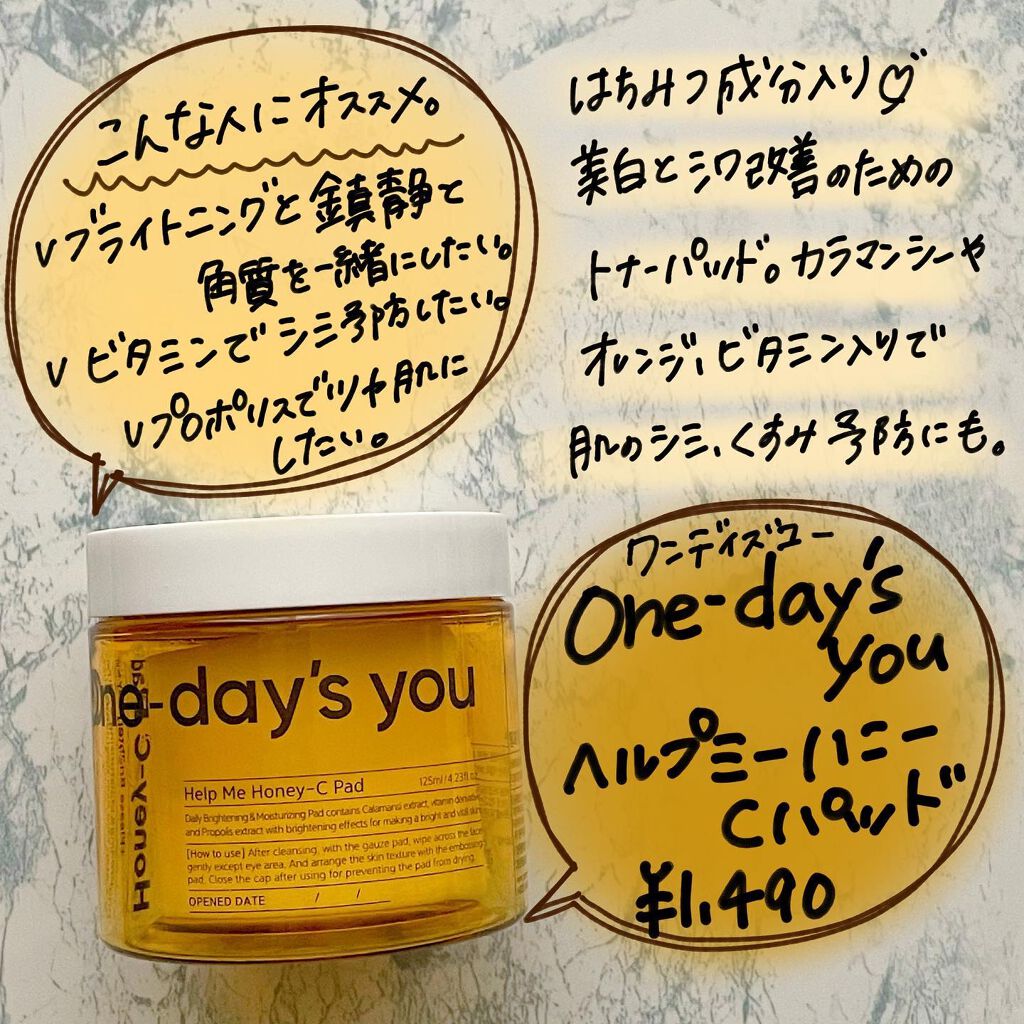 こんな人にオススメ。
∨ブライトニングと鎮静と
角質を一緒にしたい。
∨ビタミンでシミ予防したい。
∨プロポリスでツヤ肌に
したい。
はちみつ成分入り♡
美白とシワ改善のための
トナーパッド。カラマンシーや
オレンジ、ビタミン入りで
肌のシミ、くすみ予防にも。
ワンデイズユー
One-day's
you
ヘルプミーハニー
Cパッド
¥1,490
One-day's you
Help Me Honey-C Pad 125ml/4.23fl.oz
Daily Brightening & Moisturizing Pad contains Calamansi extract, vitamin derivative
and Propolis extract with brightening effects for making a bright and vital skin
[How to use] After cleansing, with the gauze pad, wipe across the face
gently except eye area. And arrange the skin texture with the embossing
pad. Close the cap after using for preventing the pad from drying.
OPENED DATE / /
Honey-C Pad